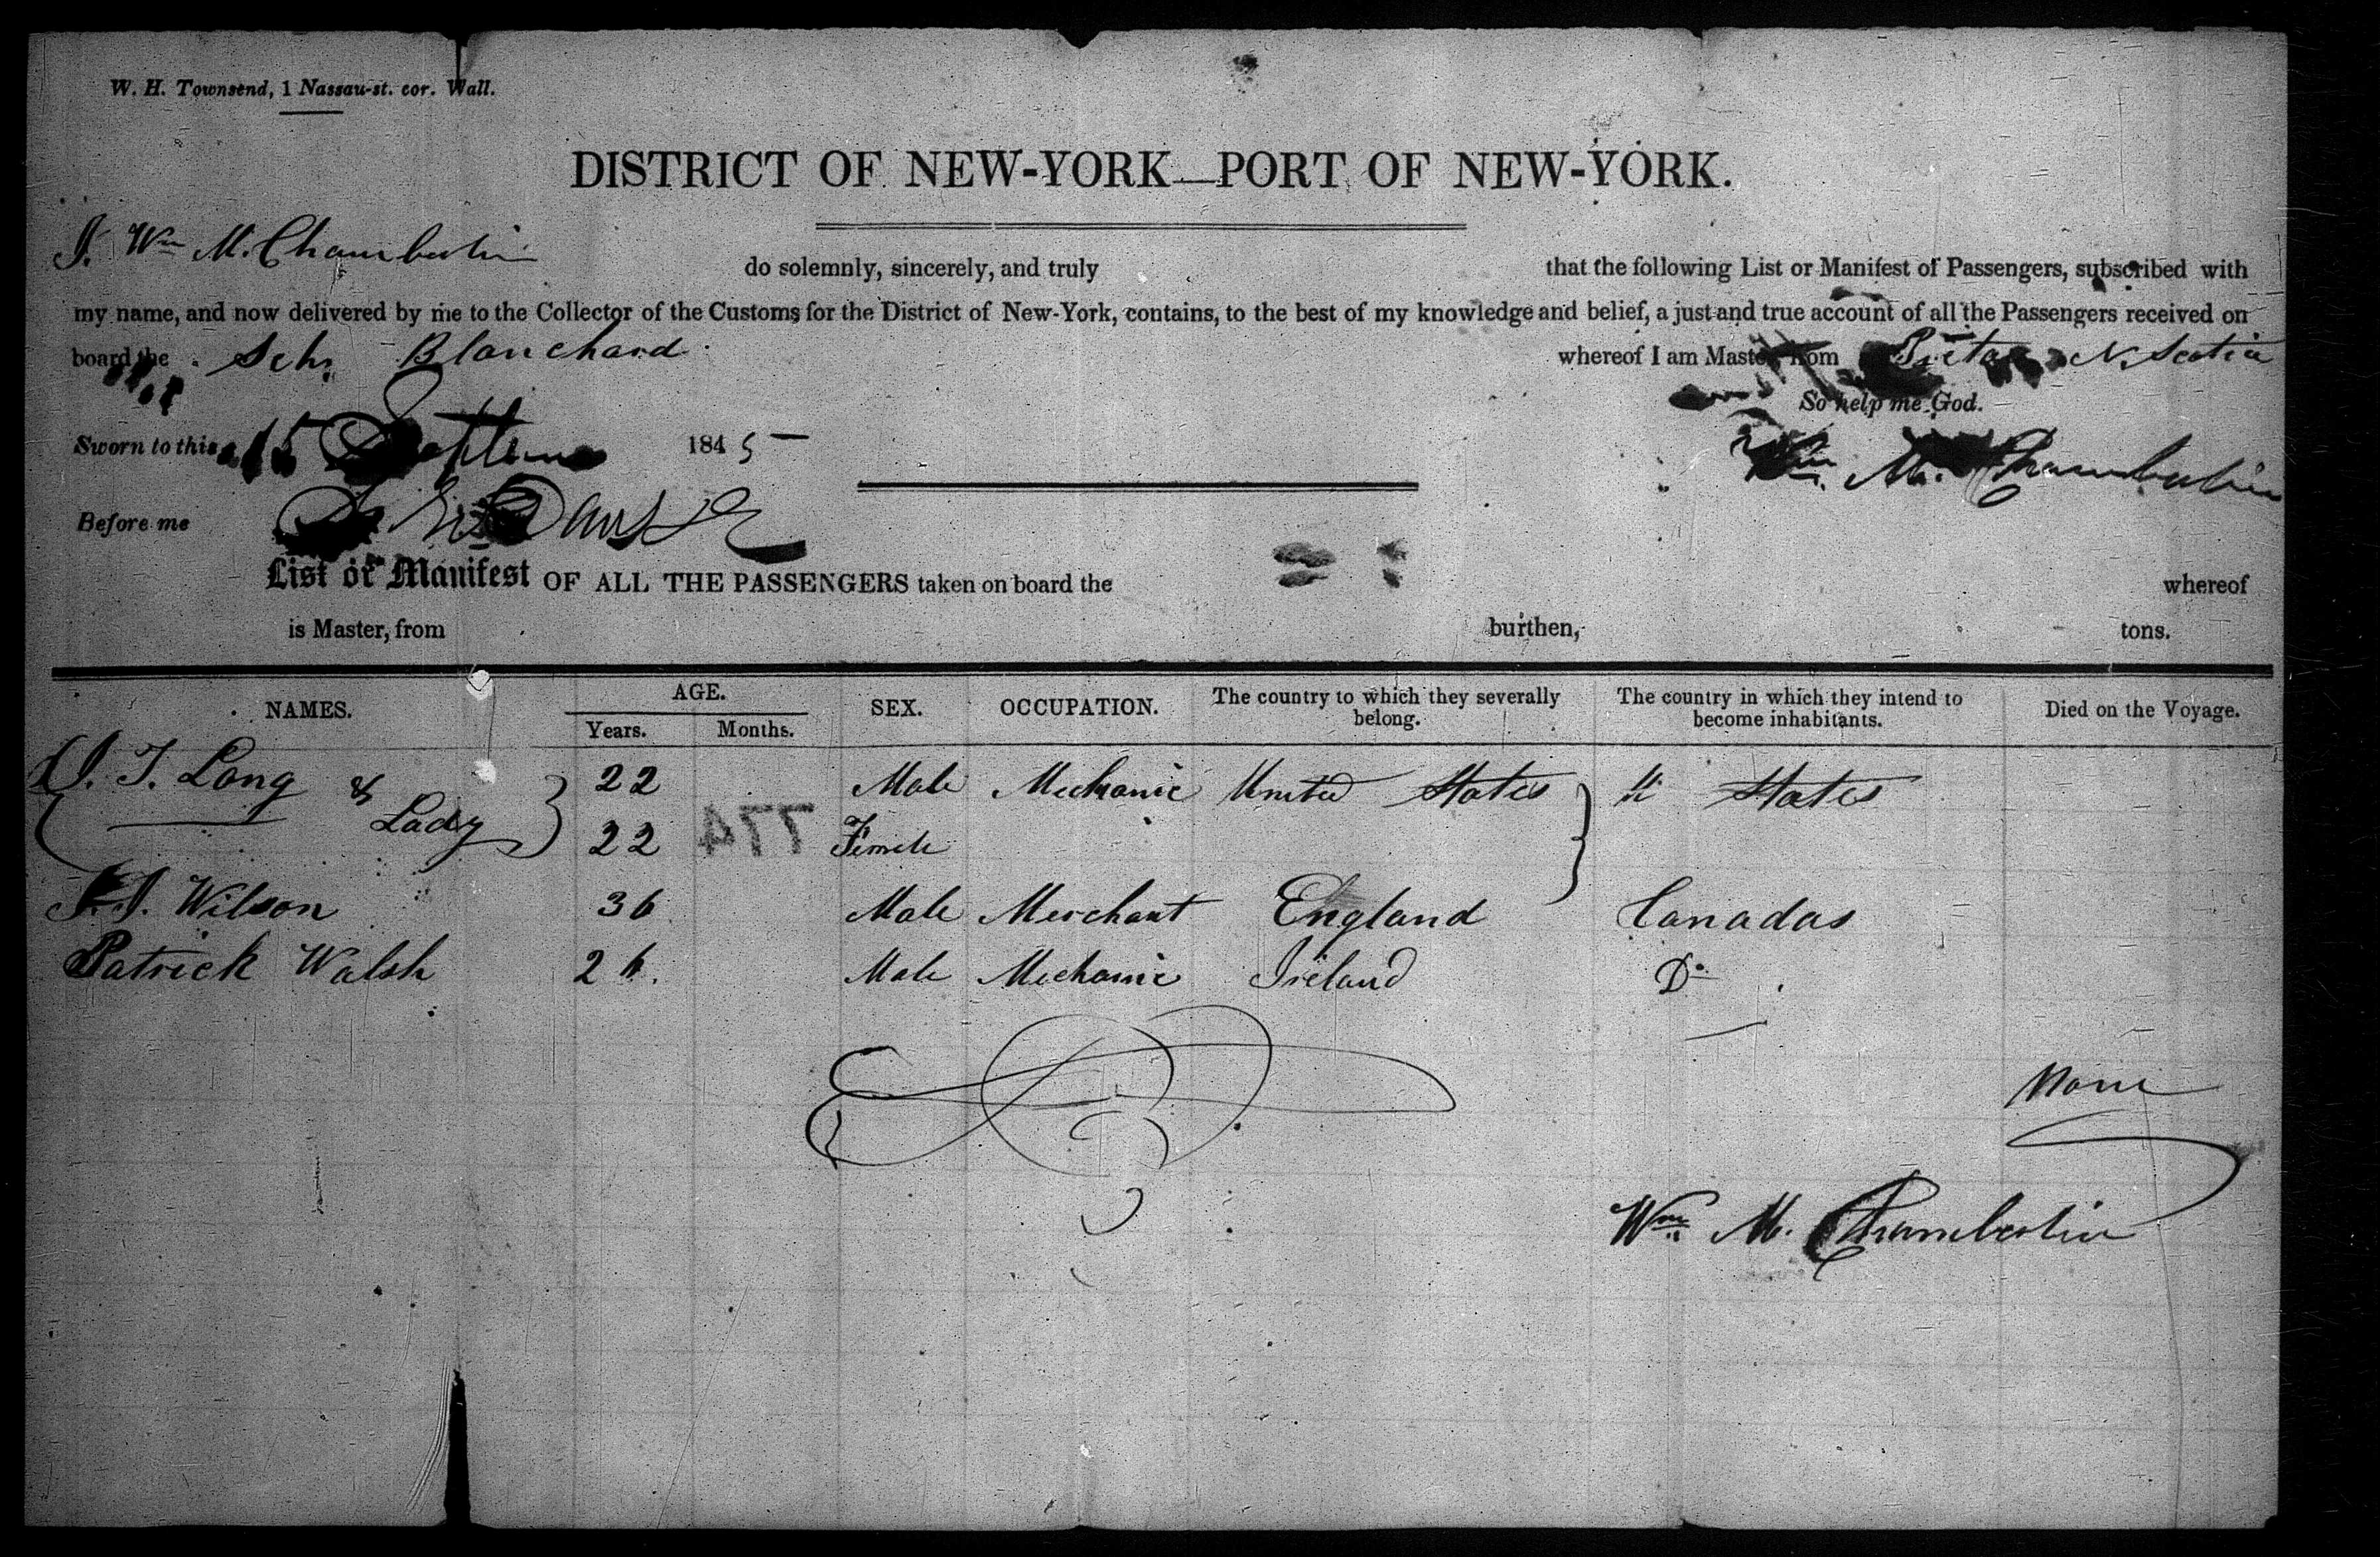 W. H. Townsend, 1 Nassau-st. cor. Wall.
DISTRICT OF NEW-YORK—PORT OF NEW-YORK.
I. Wm M. Chamberlin do solemnly, sincerely, and truly that the following List or Manifest of Passengers, subscribed with
my name, and now delivered by me to the Collector of the Customs for the District of New-York, contains, to the best of my knowledge and belief, a just and true account of all the Passengers received on
board the Schr Blanchard whereof I am Master, from Pictou N. Scotia
So help me God.
Sworn to this 15 1845
Wm. M. Chamberlin
Before me
List or Manifest OF ALL THE PASSENGERS taken on board the whereof
is Master, from burthen, tons.
NAMES. AGE. Years. Months. SEX. OCCUPATION. The country to which they severally belong. The country in which they intend to become inhabitants. Died on the Voyage.
J. T. Long & 22 Male Mechanic United States U States
Lady 22 Female
774
J. J. Wilson 36 Male Merchant England Canadas
Patrick Walsh 26. Male Mechanic Ireland Do
None
Wm M. Chamberlin